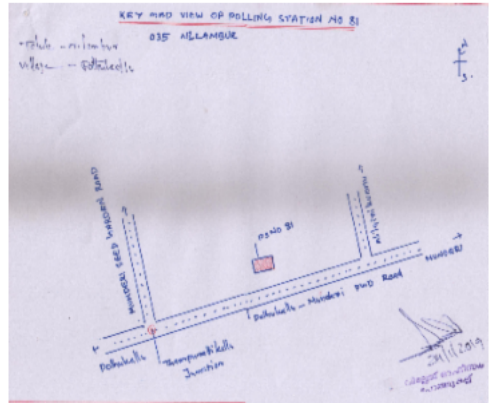 KEY MAP VIEW OF POLLING STATION NO 81
035 NILLAMBUR
Taluk - nilambur
Village - Pothukallu
N
S.
MUNDERI SEED GARDEN ROAD
PS NO 81
MUNDERI
Pothukallu - Munderi PWD Road
Pothukallu
Junction
24/1/2019